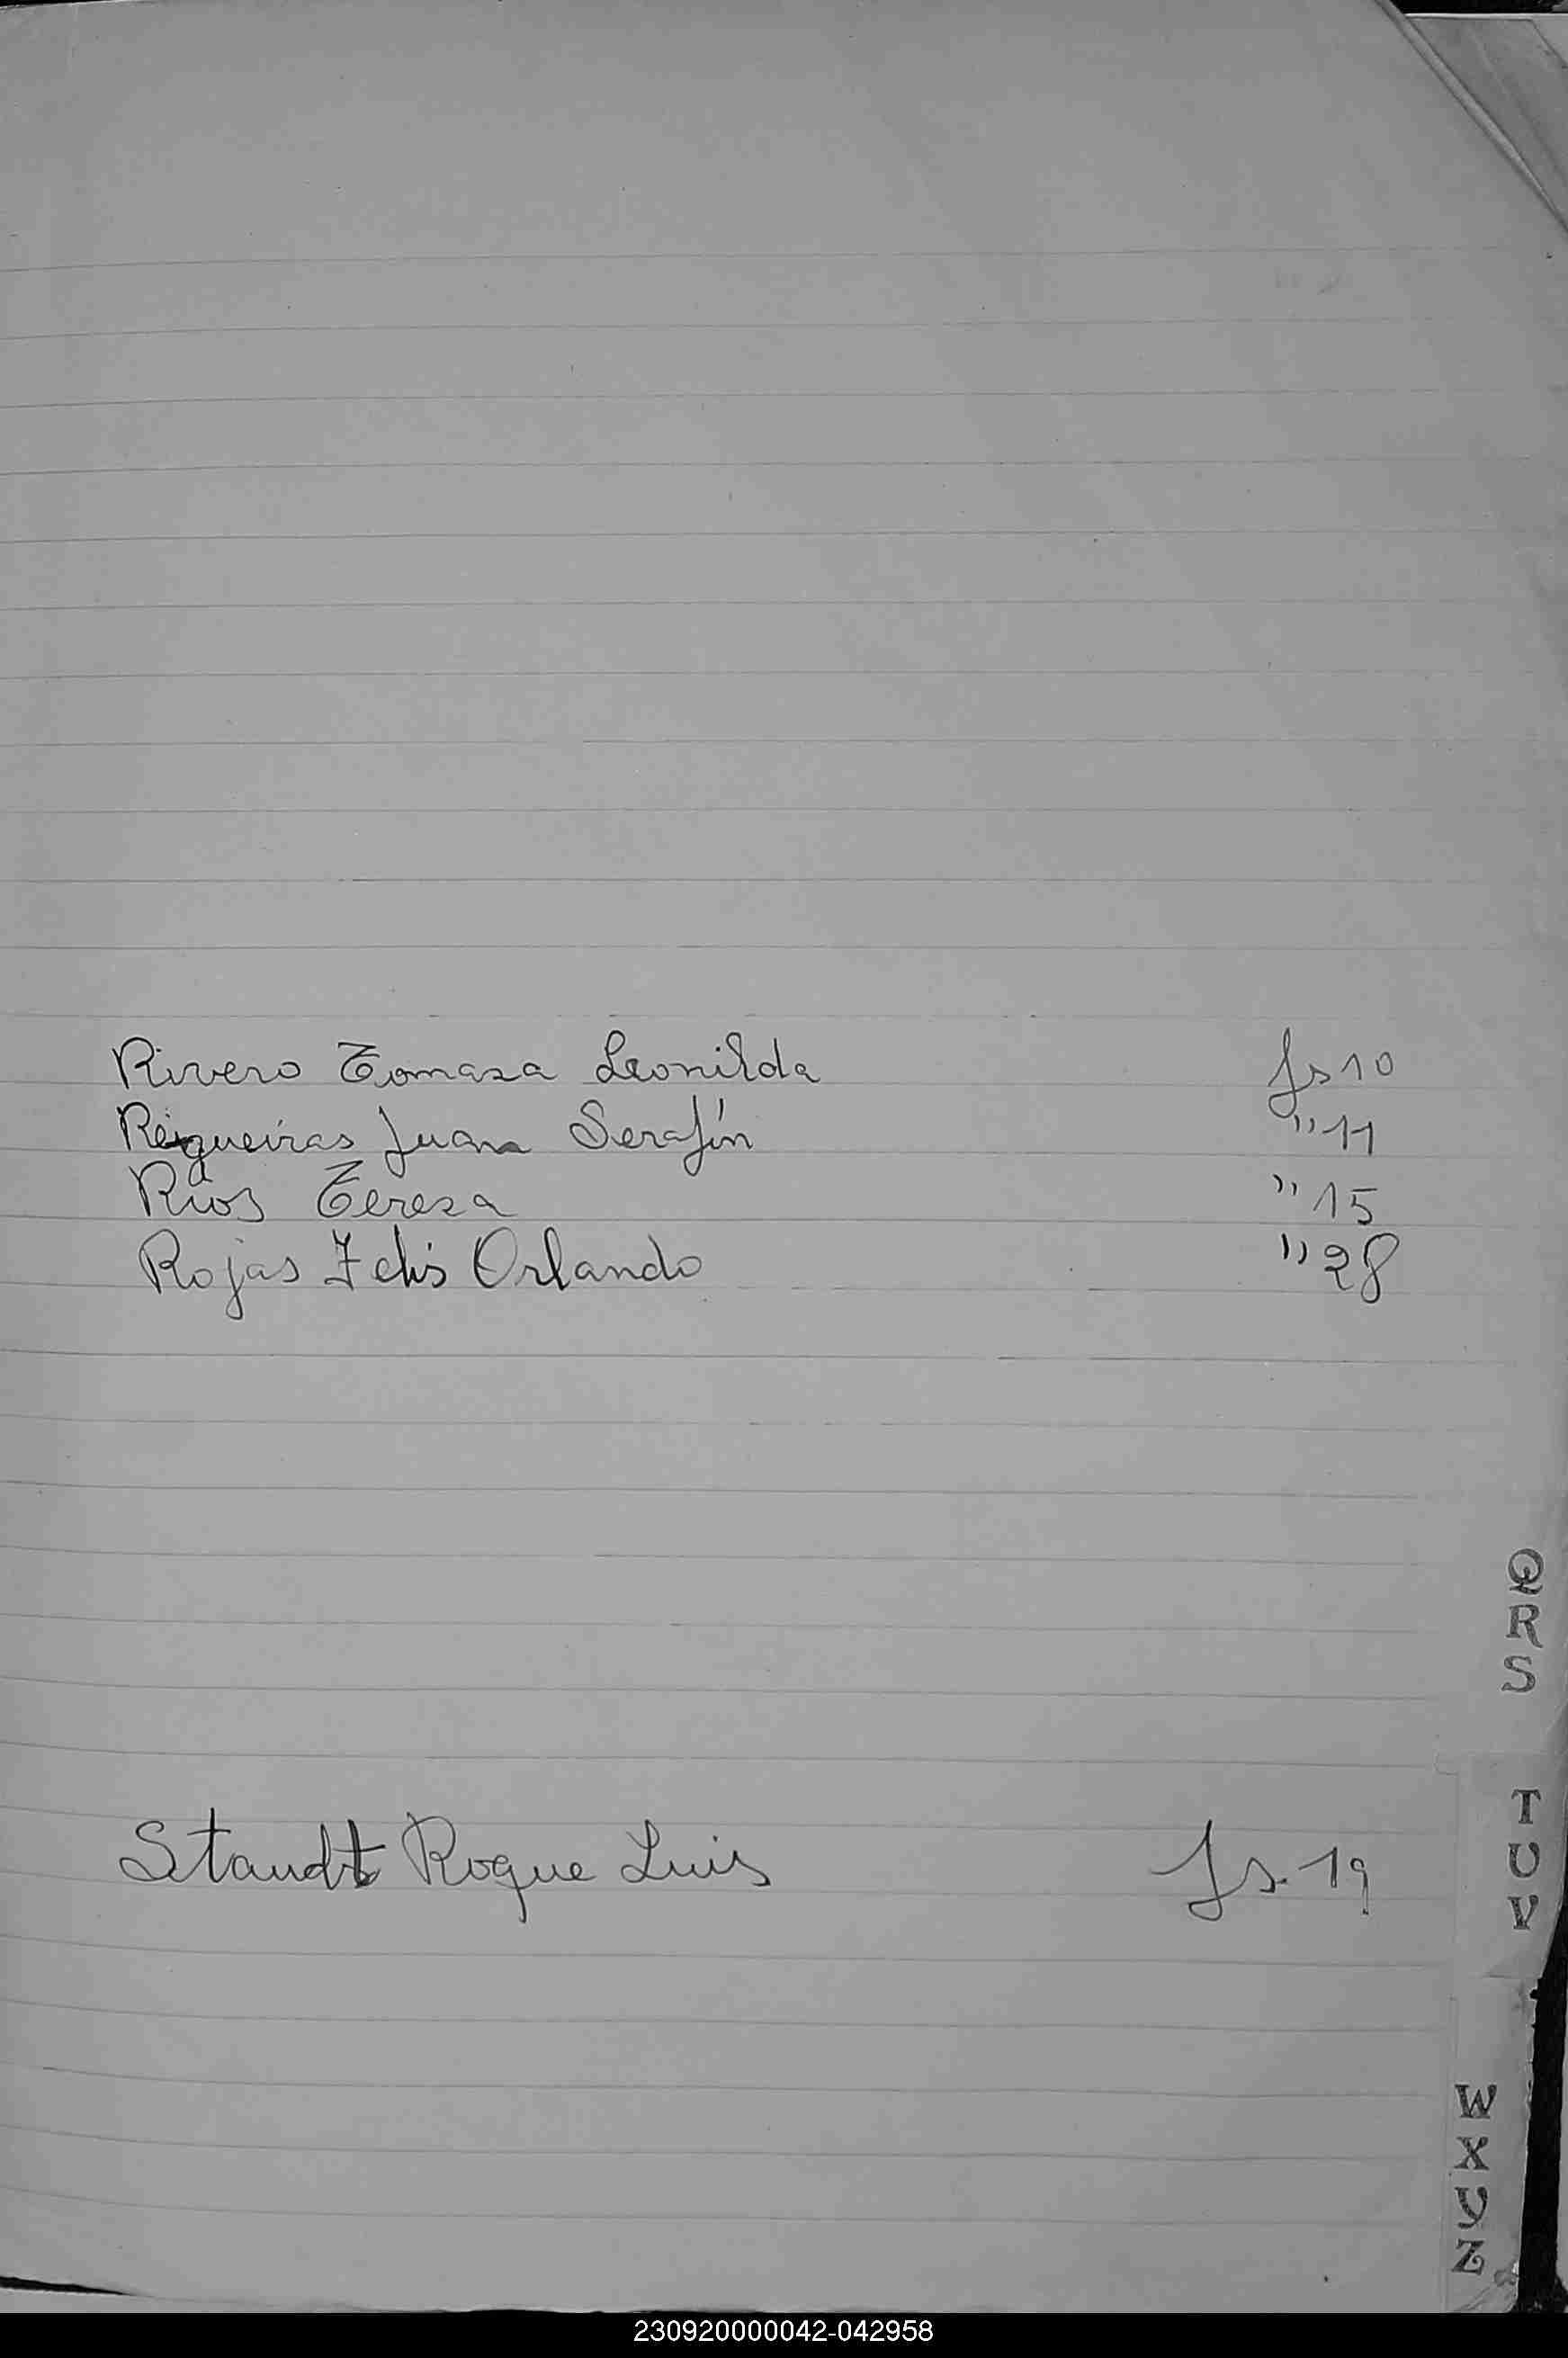 Rivero Tomasa Leonilda fs 10
Reigueiras Juan Serafín " 11
Rios Teresa " 15
Rojas Felis Orlando " 28
Q
R
S
T
U
V
Staudt Roque Luis fs. 19
W
X
Y
Z
230920000042-042958